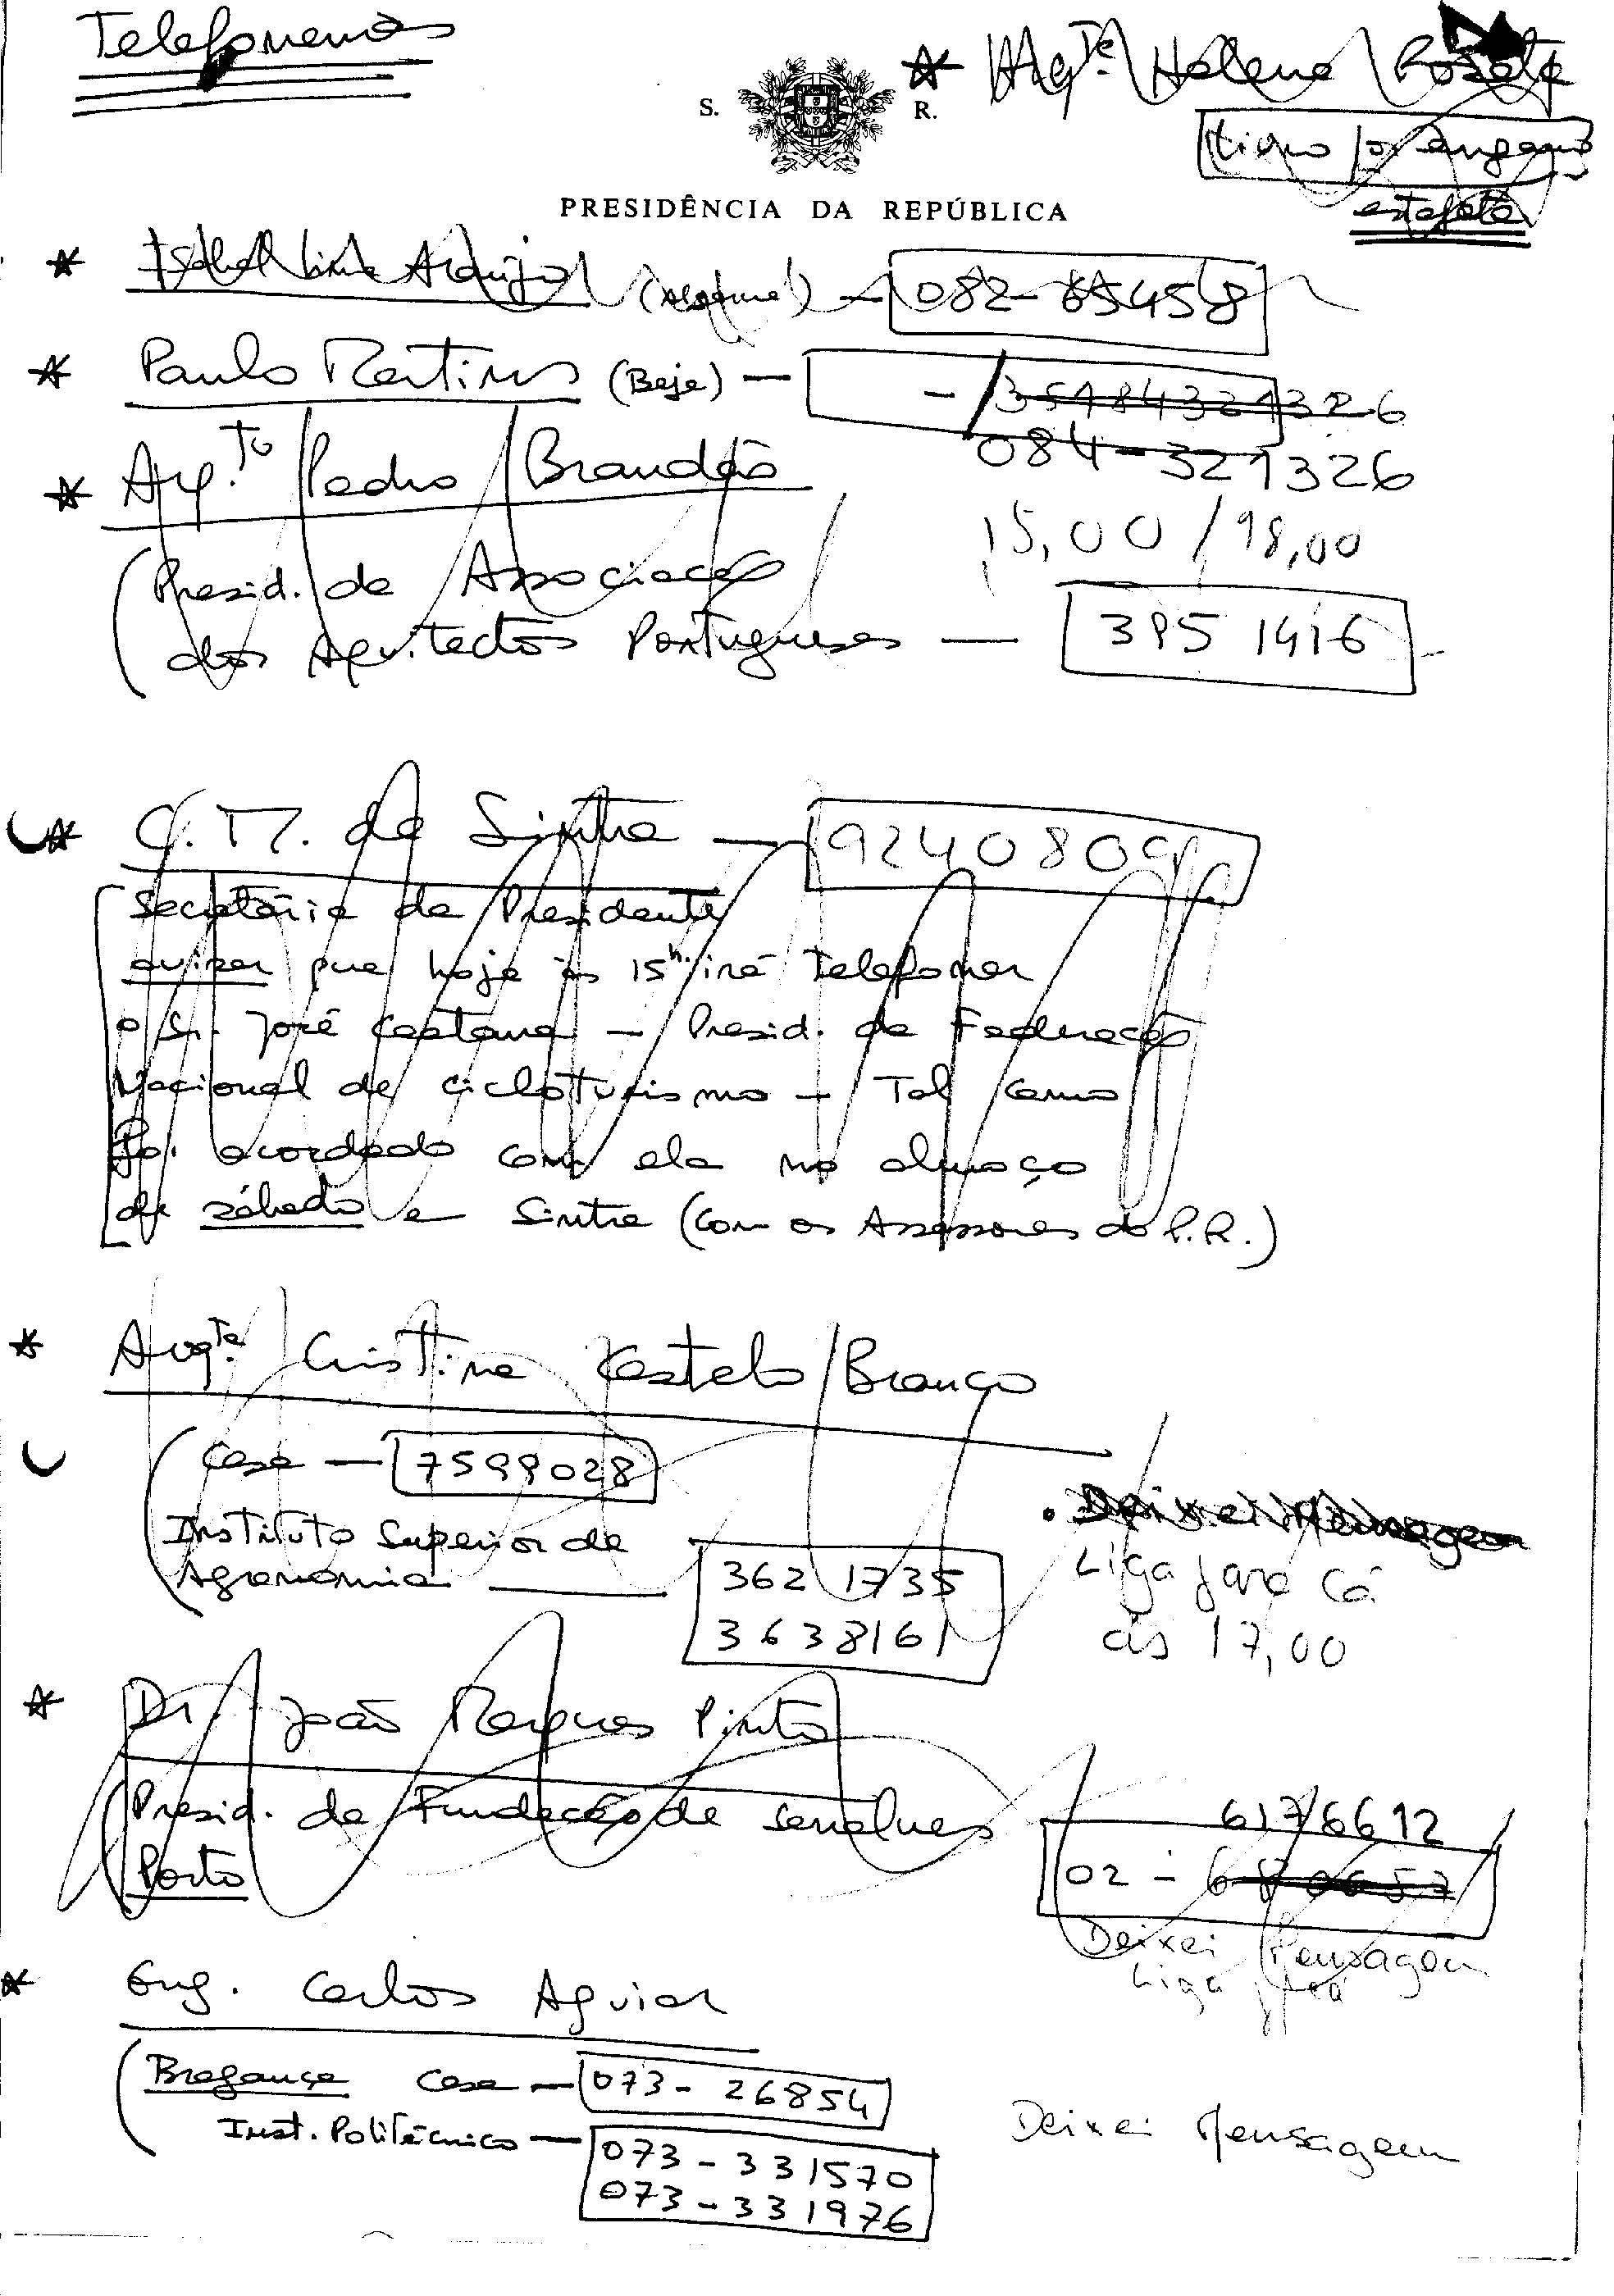 Telefonemas
* Arqtª. Helena Roseta
S. R.
livro p/
estafeta
PRESIDÊNCIA DA REPÚBLICA
* Isabel Araújo (Algarve) — 082-65458
* Paulo Martins (Beja) — - 35184321326
084-321326
* Arq.to Pedro Brandão
15,00 / 18,00
(Presid. da Associação
dos Arquitectos Portugueses — 395 1416
* C. M. de Sintra — 9240809
Secretária da Presidente
avisar que hoje às 15h. irá telefonar
o Sr. José Caetano — Presid. da Federação
Nacional de Cicloturismo — Tal como
foi acordado com ela no almoço
de sábado e Sintra (com os Assessores do P.R.)
* Arqta. Cristina Castelo Branco
(Casa — 7599028
. Deixei Mensagem
Instituto Superior de
Agronomia — 362 1735
3638161
Liga para Cá
às 17,00
* Dr. João Marques Pinto
Presid. da Fundação de Serralves
Porto
6176612
02 - 680057
Deixei Mensagem
Liga p/cá
* Eng. Carlos Aguiar
(Bragança Casa — 073- 26854
Inst. Politécnico — 073 - 331570
073 - 331976
Deixei Mensagem